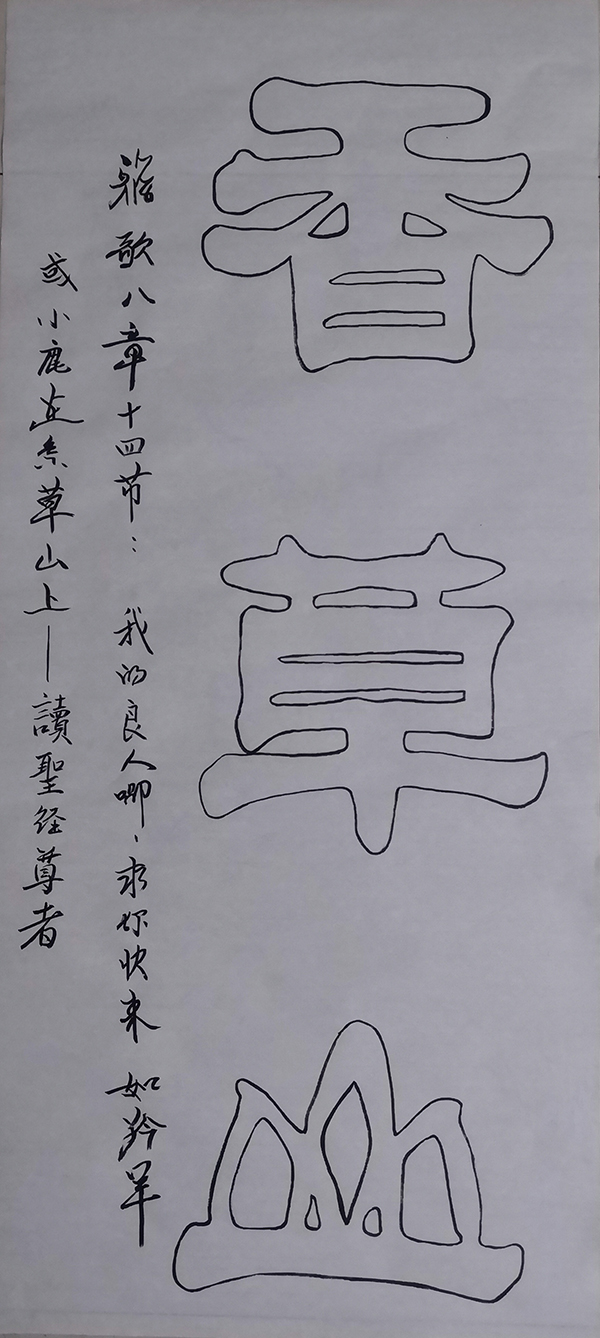 香草山
雅歌八章十四节：我的良人哪、求你快来 如羚羊
或小鹿在香草山上—讀聖经尊者